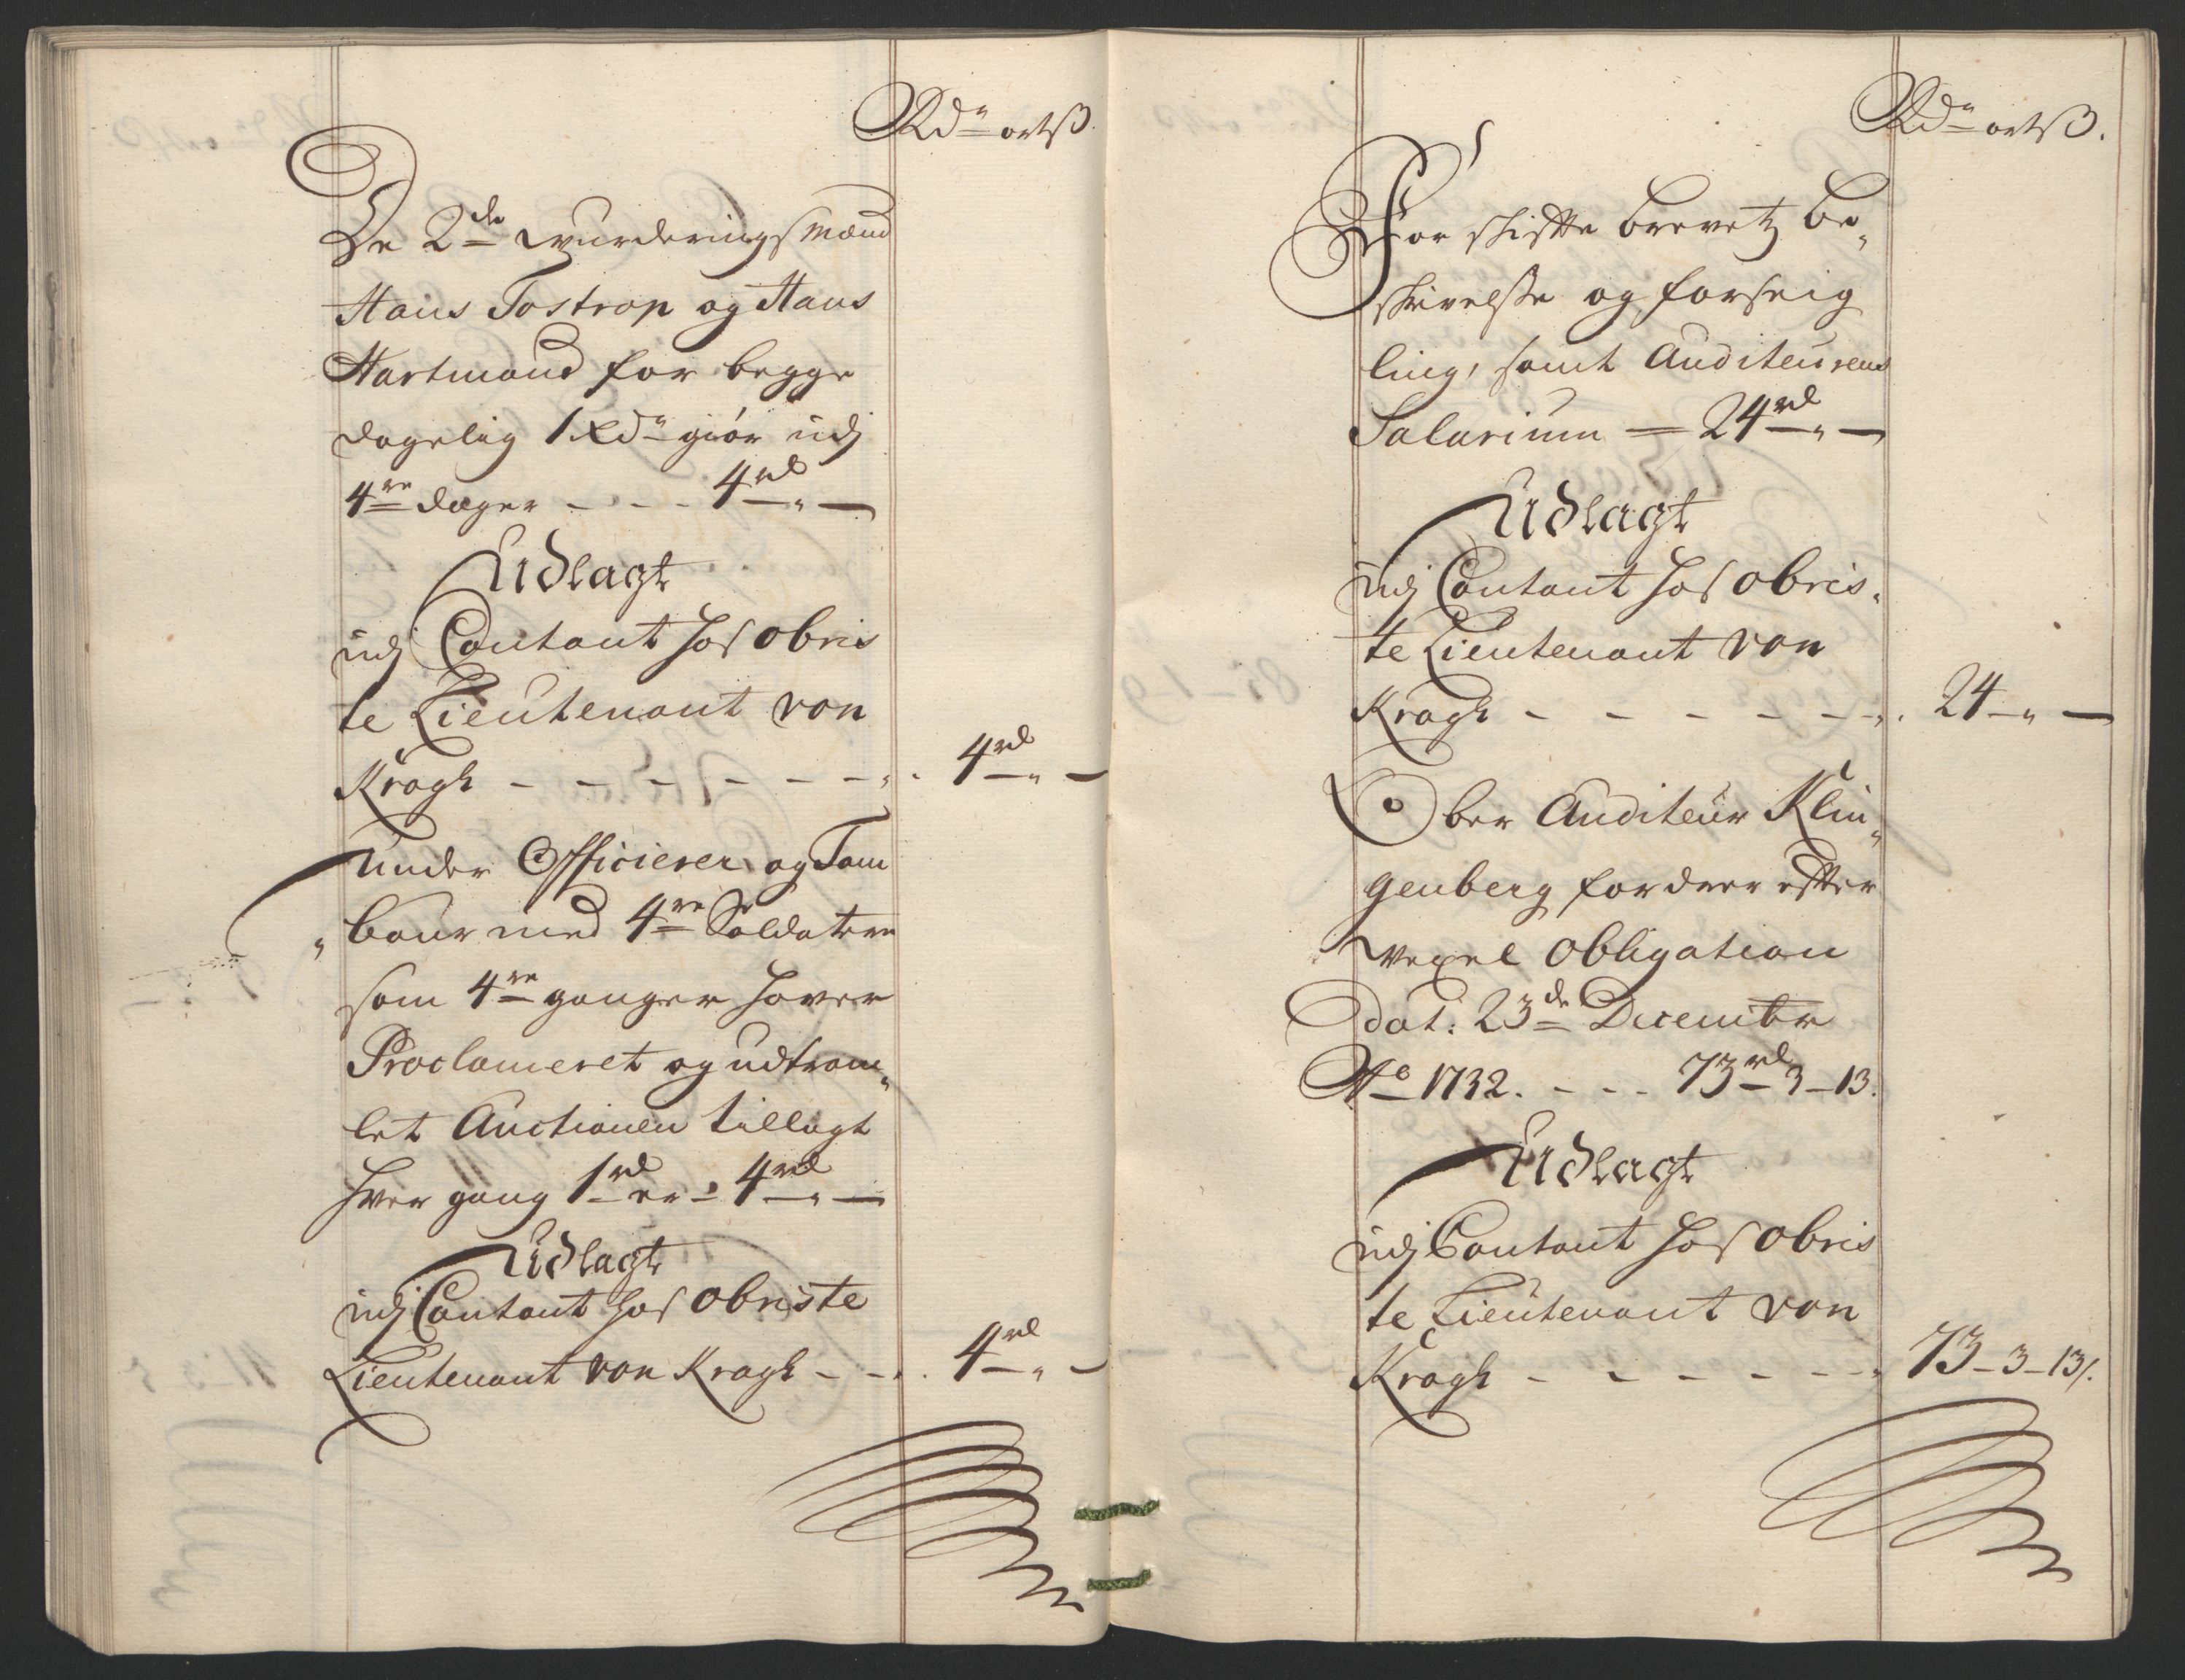 Rdr ort ß.
De 2de wurderings Mænd
Hans Tostrop og Hans
Hartmand for begge
dagelig 1 Rdr giør udj
4re dager - - - 4rd „ —
Udlagt
udj Contant hos Obris
te Lieutenant von
Kragh - - - - - - 4rd „ —
Under Officierer og Tam
„bour med 4re Soldatere
som 4re ganger haver
Proclameret og udtrom„
let Auctionen tillagt
hver gang 1rd er - 4rd „ —
Udlagt
udj Contant hos Obriste
Lieutenant von Kragh - - 4rd „ —
Rdr ort ß.
For skifte brevetz be„
skrivelsse og forseig
ling, samt Auditeurens
Salarium = 24rd „ —
Udlagt
udj Contant hos Obris„
te Lieutenant von
Kragh - - - - - - 24 - „ —
Ober Auditeur Klin„
genberg fordrer efter
vexel Obligation
dat: 23de Decembr
Ao 1732. - - - 73rd - 3 - 13.
Udlagt
udj Contant hos Obris
te Lieutenant von
Kragh - - - - - - 73 - 3 - 13/.